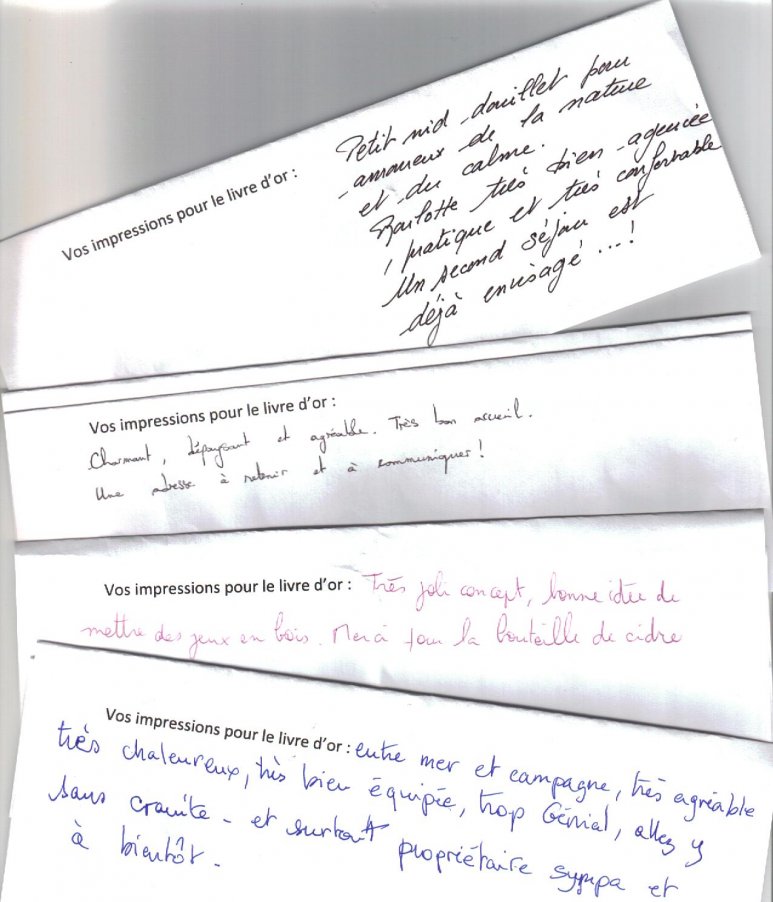 Vos impressions pour le livre d'or :
Petit nid douillet pour
amoureux de la nature
et du calme.
Roulotte très bien agencée
, pratique et très confortable
Un second séjour est
déjà envisagé ...!
Vos impressions pour le livre d'or :
Charmant, dépaysant et agréable. Très bon accueil.
Une adresse à retenir et à communiquer !
Vos impressions pour le livre d'or : Très joli concept, bonne idée de
mettre des jeux en bois. Merci pour la bouteille de cidre
Vos impressions pour le livre d'or : entre mer et campagne, très agréable
très chaleureux, très bien équipée, trop Génial, allez y
sans crainte - et surtout propriétaire sympa et
à bientôt.